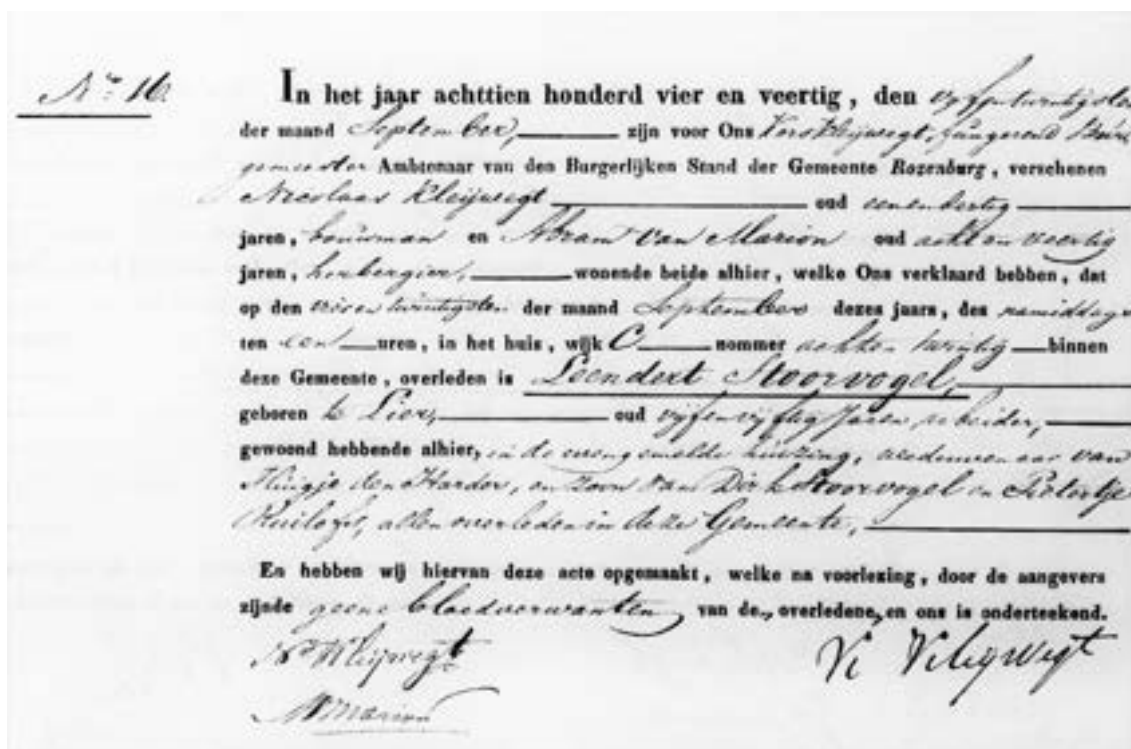 No 16
In het jaar achttien honderd vier en veertig, den vijfentwintigsten
der maand September, zijn voor Ons fungerend Burge
meester Ambtenaar van den Burgerlijken Stand der Gemeente Rozenburg, verschenen
Nicolaas Kleijwegt oud eenendertig
jaren, bouwman en Abram van Marion oud achtenveertig
jaren, herbergier, wonende beide alhier, welke Ons verklaard hebben, dat
op den vierentwintigsten der maand September dezes jaars, des namiddags
ten een uren, in het huis, wijk C nommer achtentwintig binnen
deze Gemeente, overleden is Leendert Stoorvogel,
geboren te Lier, oud vijfenvijftig jaren, arbeider,
gewoond hebbende alhier, in de voorgemelde huizing, weduwenaar van
Huigje den Harder, en zoon van Dirk Stoorvogel en Pietertje
allen overleden in deze Gemeente,
En hebben wij hiervan deze acte opgemaakt, welke na voorlezing, door de aangevers
zijnde geene bloedverwanten van de, overledene, en ons is onderteekend.
Ns Kleijwegt
Kleijwegt
Marion